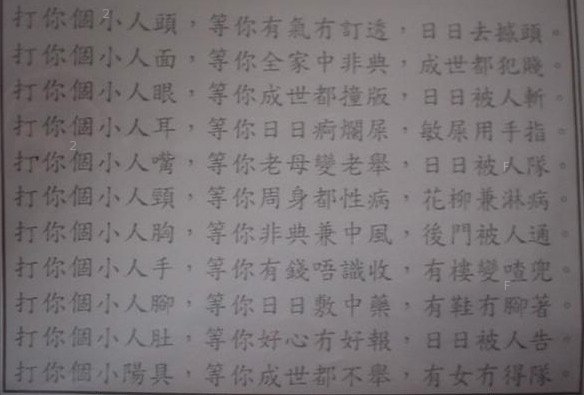 打你個小人頭，等你有氣冇訂透，日日去撼頭。
打你個小人面，等你全家中非典，成世都犯賤。
打你個小人眼，等你成世都撞版，日日被人斬。
打你個小人耳，等你日日痾爛屎，敏屎用手指。
打你個小人嘴，等你老母變老舉，日日被人隊。
打你個小人頸，等你周身都性病，花柳兼淋病。
打你個小人胸，等你非典兼中風，後門被人通。
打你個小人手，等你有錢唔識收，有樓變喳兜。
打你個小人腳，等你日日敷中藥，有鞋冇腳著。
打你個小人肚，等你好心冇好報，日日被人告。
打你個小陽具，等你成世都不舉，有女冇得隊。